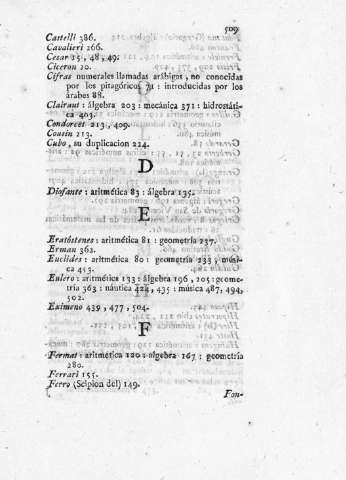 509
Castelli 386.
Cavalieri 266.
Cesar 15, 48, 49.
Ciceron 20.
Cifras numerales llamadas arábigos, no conocidas
por los pitagóricos 71: introducidas por los
árabes 88.
Clairaut: álgebra 203: mecánica 371: hidrostáti-
ca 403.
Condorcet 213, 409.
Cousin 213.
Cubo, su duplicacion 224.
D
Diofante: aritmética 83: álgebra 135.
E
Eratóstenes: aritmética 81: geometría 237.
Erman 362.
Euclides: aritmética 80: geometría 233, músi-
ca 453.
Eulero: aritmética 133: álgebra 196, 205: geome-
tría 363: náutica 424, 435: música 487, 494,
502.
Eximeno 439, 477, 504.
F
Fermat: aritmética 120: álgebra 167: geometría
280.
Ferrari 155.
Ferro (Scipion del) 149.
Fon-